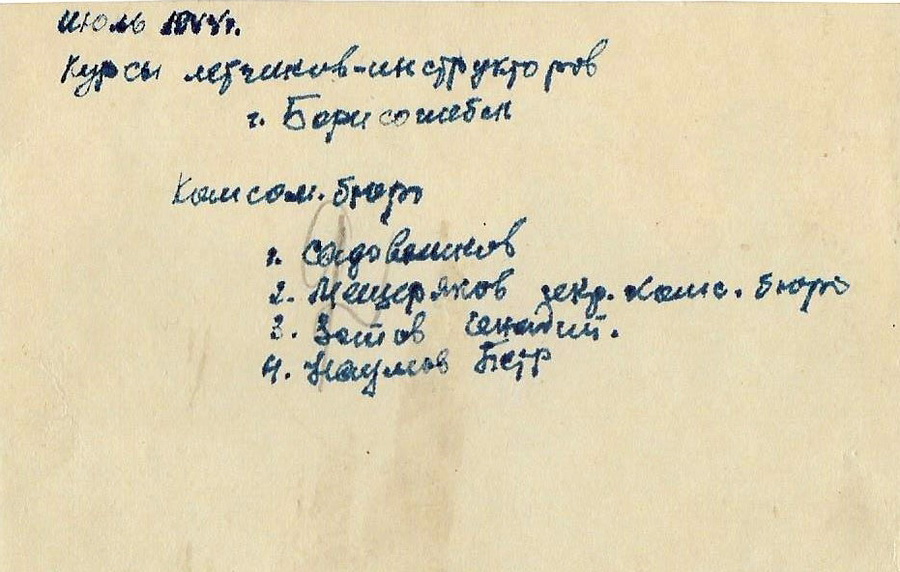 Июль 1944г.
Курсы летчиков-инструкторов
г. Борисоглебск
Комсом. бюро
2
1. Садовников
2. Мещеряков секр. комс. бюро
3. Зотов Генадий.
4. Наумов Петр